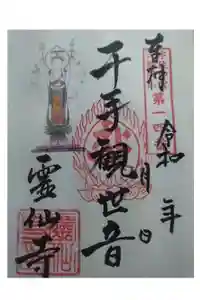 奉拝
第一
令和 年
月 日
千手観世音
霊仙寺